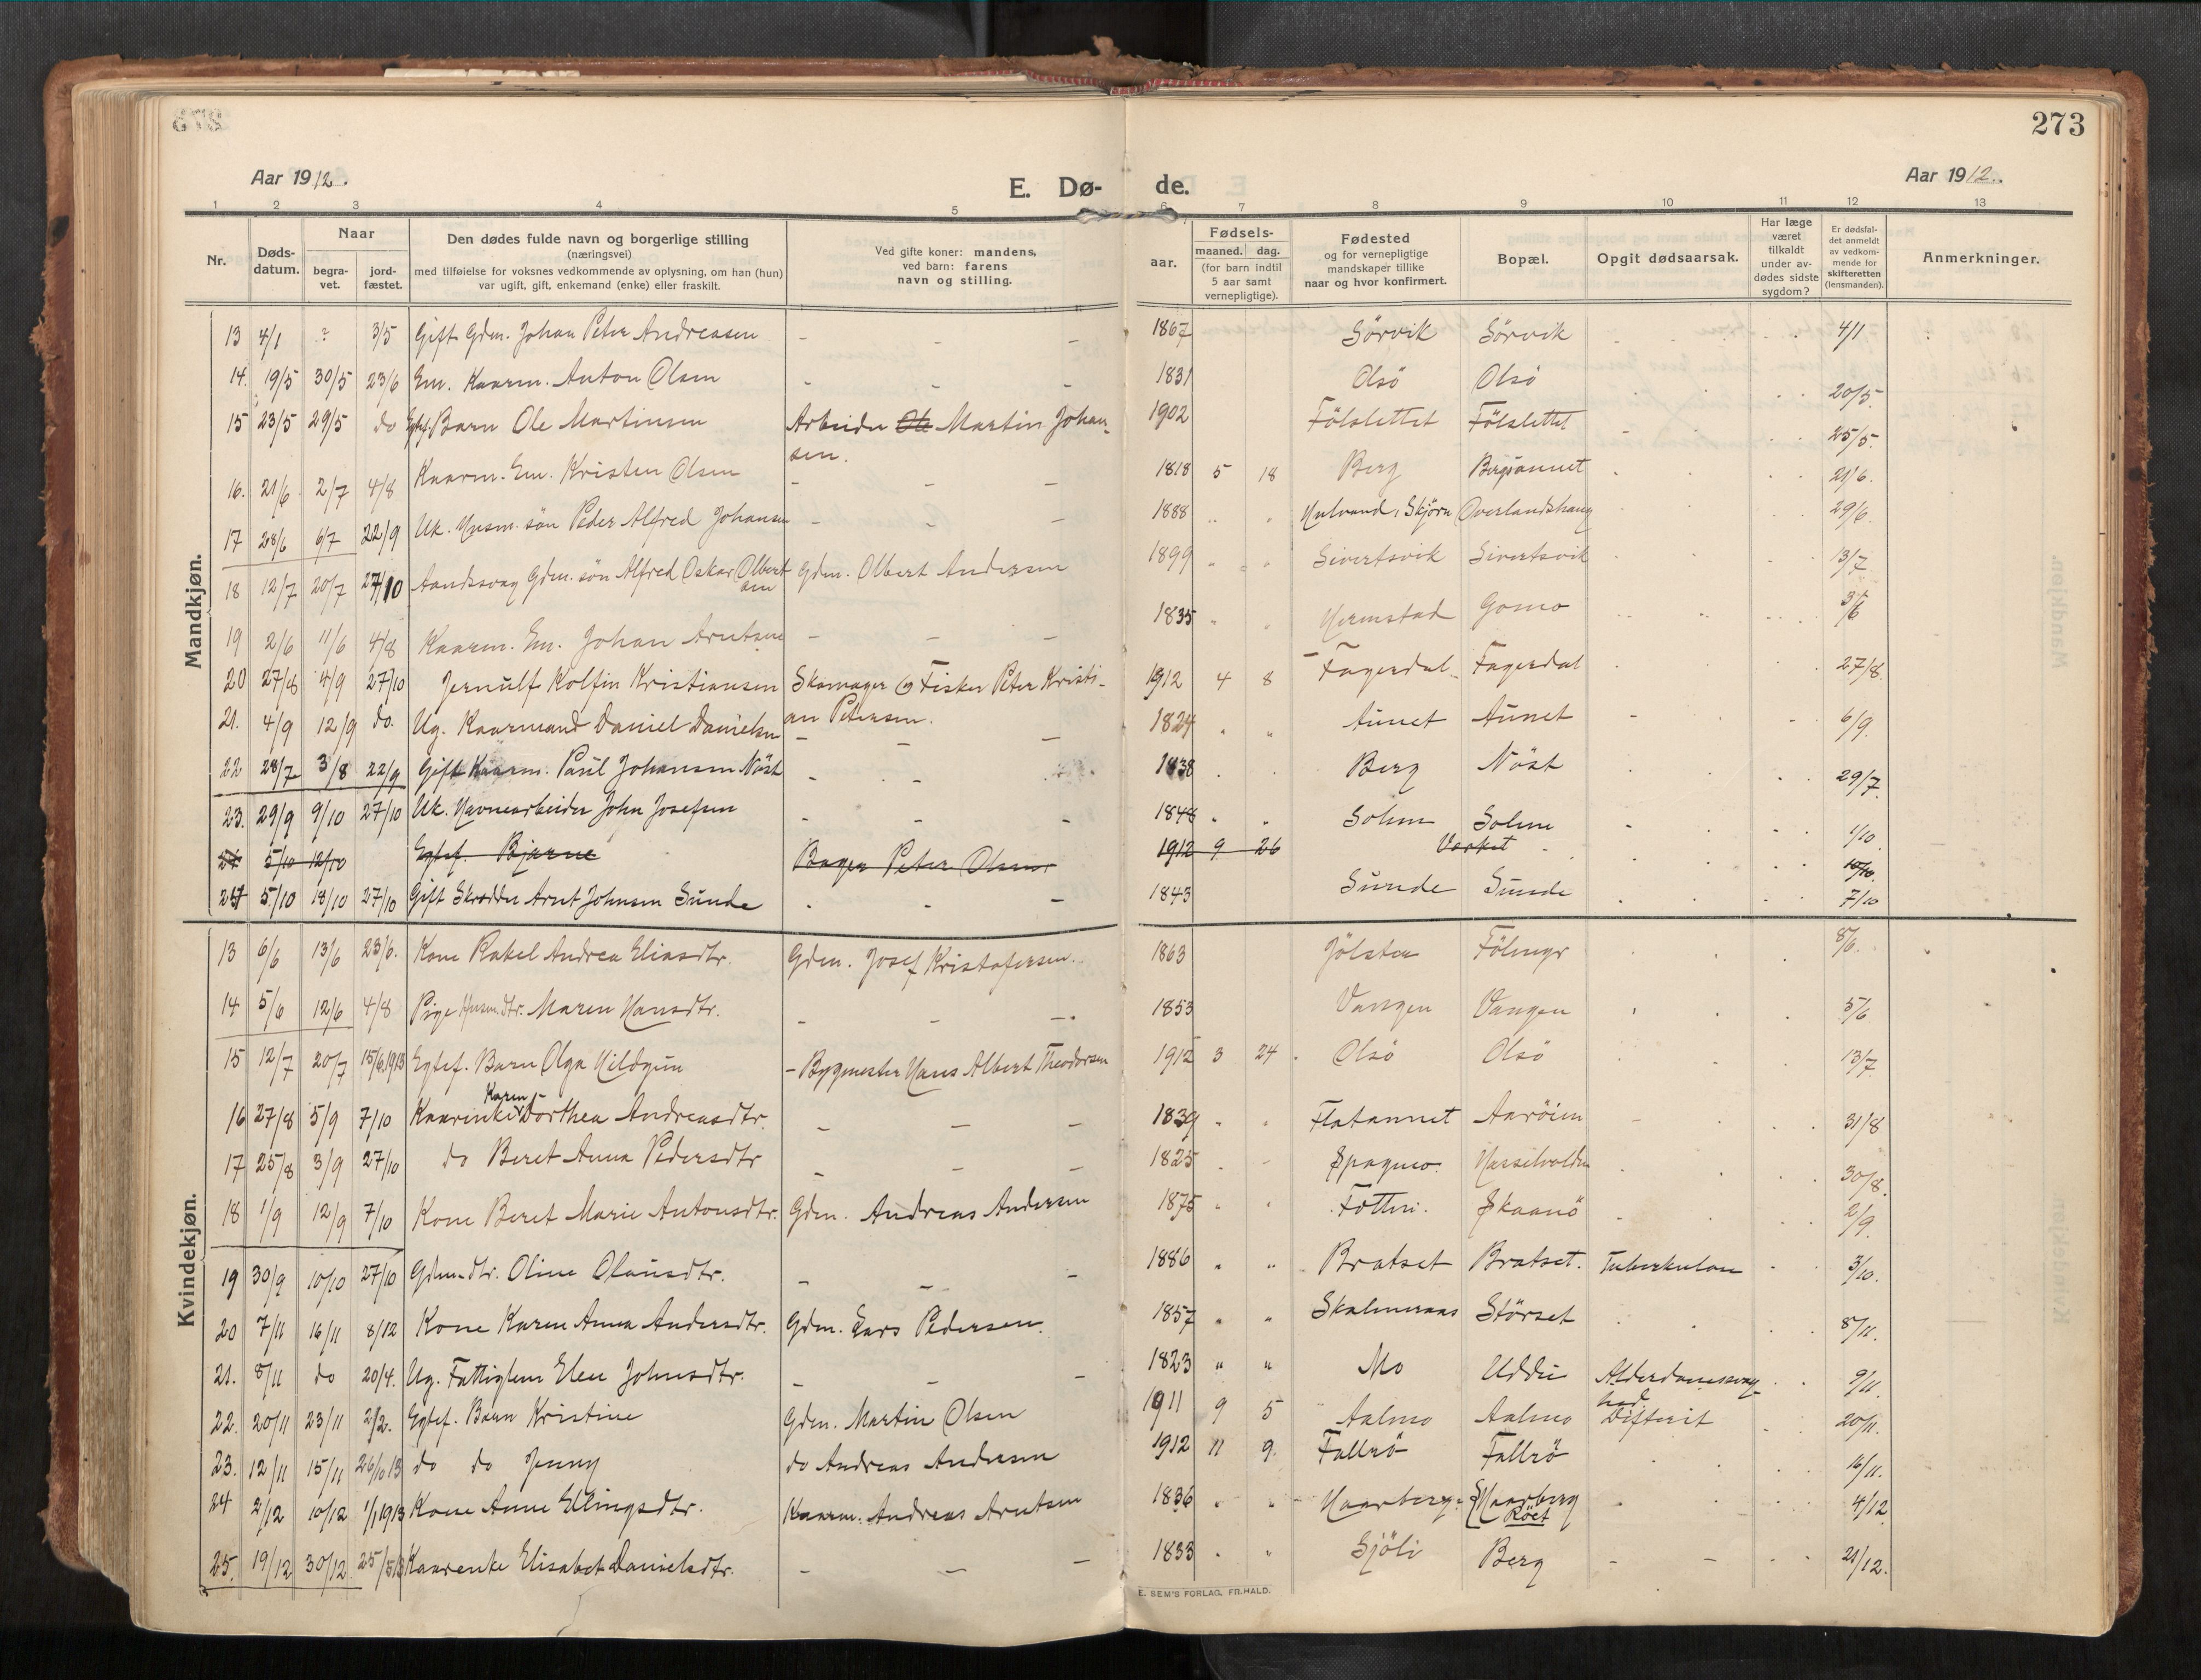 273
Aar 1912.
E. Dø-
de.
Aar 1912.
1 2 3 4 5 6 7 8 9 10 11 12 13
Nr.
Døds-
datum.
Naar
begra-
vet.
jord-
fæstet.
Den dødes fulde navn og borgerlige stilling
(næringsvei)
med tilføielse for voksnes vedkommende av oplysning, om han (hun)
var ugift, gift, enkemand (enke) eller fraskilt.
Ved gifte koner: mandens,
ved barn: farens
navn og stilling.
aar.
Fødsels-
maaned. dag.
(for barn indtil
5 aar samt
vernepligtige).
Fødested
og for vernepligtige
mandskaper tillike
naar og hvor konfirmert.
Bopæl.
Opgit dødsaarsak.
Har læge
været
tilkaldt
under av-
dødes sidste
sygdom?
Er dødsfal-
det anmeldt
av vedkom-
mende for
skifteretten
(lensmanden).
Anmerkninger.
Mandkjøn.
13 4/1 ? 3/5 Gift Gdm. Johan Peter Andreasen - - - 1867 Sörvik Sörvik 4/1
14. 19/5 30/5 23/6 Em. Kaarm. Anton Olsen - - - 1831 Olsö Olsö 20/5.
15 23/5 29/5 do Egtef. Barn Ole Martinsen Arbeider Ole Martin Johan- 1902 Fölslettet Fölslettet 25/5.
sen.
16. 21/6 2/7 4/8 Kaarm. Em. Kristen Olsen - - - 1818 5 18 Berg Bergsaunet 21/6.
17 28/6 6/7 22/9 Uk. Husm. sön Peder Alfred Johansen - - - 1888 Skjörn Overlandshaug 29/6.
18 12/7 20/7 27/10 Aandssvag Gdm. sön Alfred Oskar Olbert Gdm. Olbert Andersen 1899 Sivertsvik Sivertsvik 13/7
sen
19 2/6 11/6 4/8 Kaarm. Em. Johan Arntsen - - - 1835 Hermstad Gomo 3/6
20 27/8 4/9 27/10 Jernulf Kolfin Kristiansen Skomager og Fisker Peter Kristi- 1912 4 8 Fagerdal Fagerdal 27/8.
21. 4/9 12/9 do. Ug. Kaarmand Daniel Danielsen an Petersen. 1824 Aunet Aunet 6/9.
22 28/7 3/8 22/9 Gift Kaarm. Paul Johansen Nöst - - 1838 Berg Nöst 29/7.
23. 29/9 9/10 27/10 Uk. Havnearbeider John Josefsen - - - 1848 Solem Solem 1/10
24 5/10 12/10 Egtef. Bjarne Bager Peter Olsen 1912 9 26 Værket 10/10.
24 5/10 18/10 27/10 Gift Skrædder Arnt Johnsen Sunde - - - 1843 Sunde Sunde 7/10
Kvindekjøn.
13 6/6 13/6 23/6. Kone Rakel Andrea Eliasdtr. Gdm. Josef Kristofersen. 1863 Jölster Fölmyr 8/6.
14 5/6 12/6 4/8 Pige Husm.dtr. Maren Hansdtr. - - - 1853 Vangen Vangen 5/6
15 12/7 20/7 15/6 1913 Egtef. Barn Olga Hildgun - Bygmester Hans Albert Theodorsen 1912 3 24 Olsö Olsö 13/7
Karen
16 27/8 5/9 7/10 Kaarenke Dorthea Andreasdtr. - - - 1839 Flataunet Aaröien 31/8
17 25/8 3/9 27/10 do Beret Anna Pedersdtr - - 1825 Spagmo. Hasselvolden 30/8.
18 1/9 12/9 7/10 Kone Beret Marie Antonsdtr. Gdm. Andreas Andersen 1875 Fötten. Skaanö 2/9.
19 30/9 10/10 27/10 Gdm.dtr. Oline Olausdtr. - - - 1886 Bratset Bratset. Tuberkulose 3/10.
20 7/11 16/11 8/12 Kone Karen Anna Andersdtr. Gdm. Lars Pedersen. 1857 Skalmeraas Störset 8/11.
21. 8/11 do 20/4. Ug. Fattiglem Elen Johnsdtr. - - - 1823 Mo Uddu Alderdomssvag- 9/11.
hed.
22. 20/11 23/11 2/2. Egtef. Barn Kristine Gdm. Martin Olsen 1911 9 5 Aalmo Aalmo Difterit 20/11.
23. 12/11 15/11 26/10 13 do do Jenny do Andreas Andersen 1912 11 9. Fallrö Fallrö 16/11.
24 2/12 10/12 1/1 1913 Kone Anne Ellingsdtr. Kaarm. Andreas Arntsen 1836 Haarberg Haarberg 4/12
Röet
25. 19/12 30/12 25/5 13 Kaarenke Elisabet Danielsdtr. - - - 1833 Sjöli Berg 21/12.
E. SEM'S FORLAG, FR.HALD.